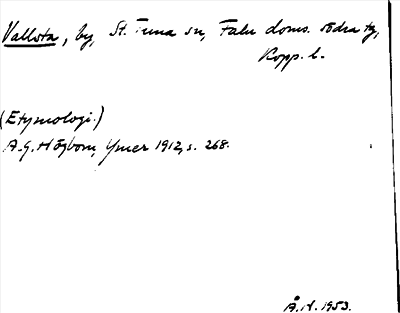 Vallsta, by, St. Tuna sn, Falu doms. södra tg,
Kopp. l.
(Etymologi.)
A.G. Högbom, Ymer 1912, s. 268.
Å.H. 1953.